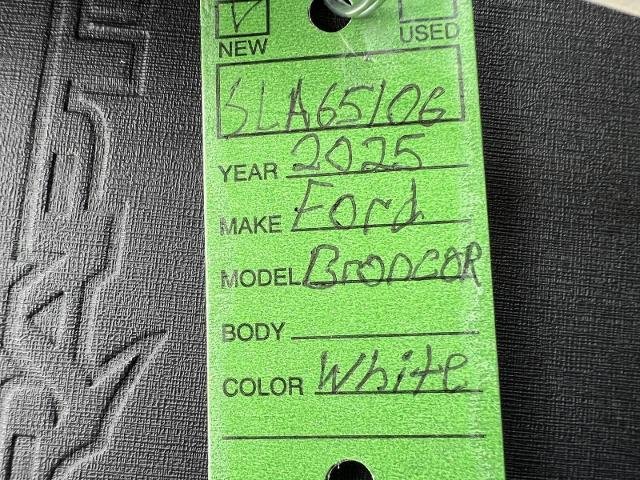 NEW USED
SLA65106
YEAR 2025
MAKE Ford
MODEL BroncoR
BODY
COLOR White